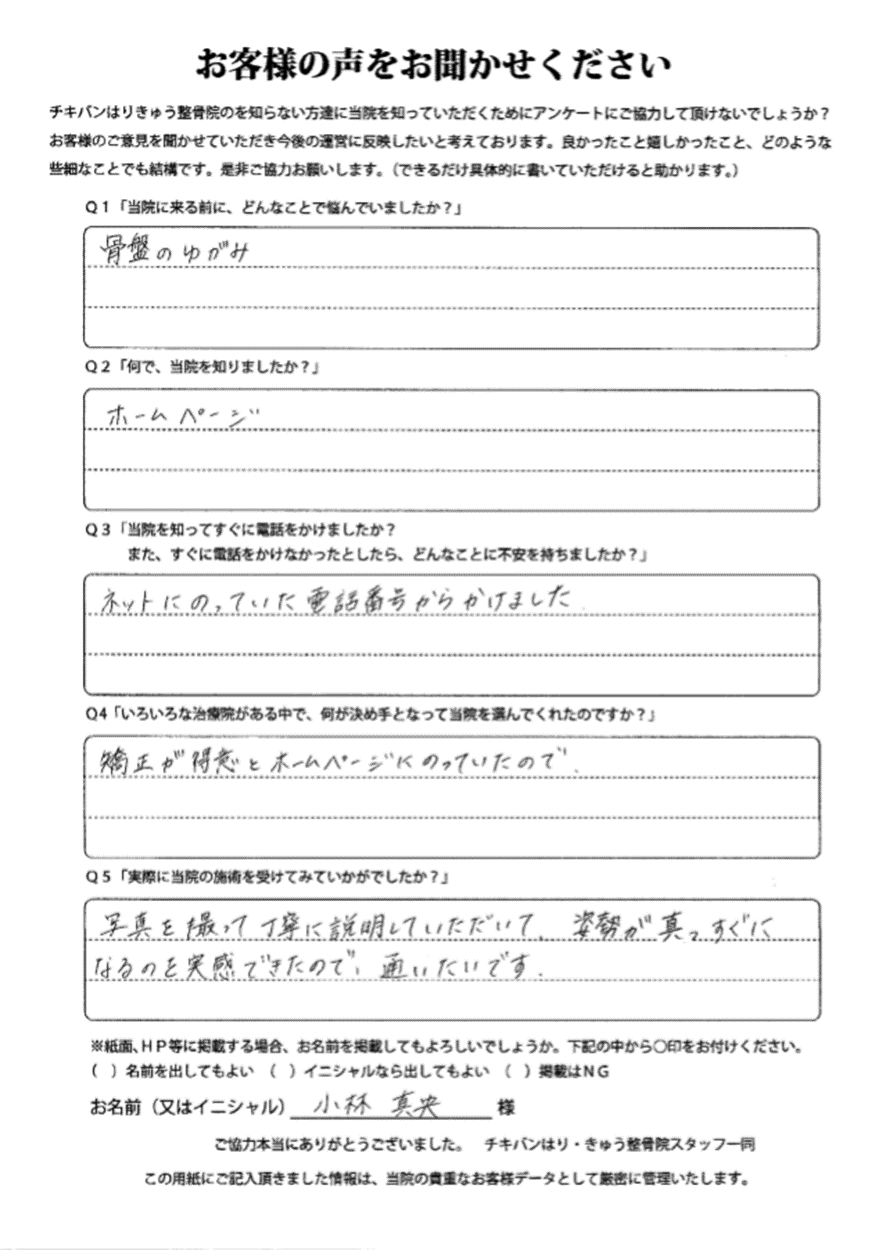 お客様の声をお聞かせください
チキバンはりきゅう整骨院のを知らない方達に当院を知っていただくためにアンケートにご協力して頂けないでしょうか?
お客様のご意見を聞かせていただき今後の運営に反映したいと考えております。良かったこと嬉しかったこと、どのような
些細なことでも結構です。是非ご協力お願いします。(できるだけ具体的に書いていただけると助かります。)
Q1「当院に来る前に、どんなことで悩んでいましたか?」
骨盤のゆがみ
Q2「何で、当院を知りましたか?」
ホームページ
Q3「当院を知ってすぐに電話をかけましたか?
また、すぐに電話をかけなかったとしたら、どんなことに不安を持ちましたか?」
ネットにのっていた電話番号からかけました.
Q4「いろいろな治療院がある中で、何が決め手となって当院を選んでくれたのですか?」
矯正が得意とホームページにのっていたので.
Q5「実際に当院の施術を受けてみていかがでしたか?」
写真を撮って丁寧に説明していただいて、姿勢が真っすぐに
なるのを実感できたので、通いたいです.
※紙面、HP等に掲載する場合、お名前を掲載してもよろしいでしょうか。下記の中から○印をお付けください。
( )名前を出してもよい ( )イニシャルなら出してもよい ( )掲載はNG
お名前(又はイニシャル) 小林 真央 様
ご協力本当にありがとうございました。 チキバンはり・きゅう整骨院スタッフ一同
この用紙にご記入頂きました情報は、当院の貴重なお客様データとして厳密に管理いたします。